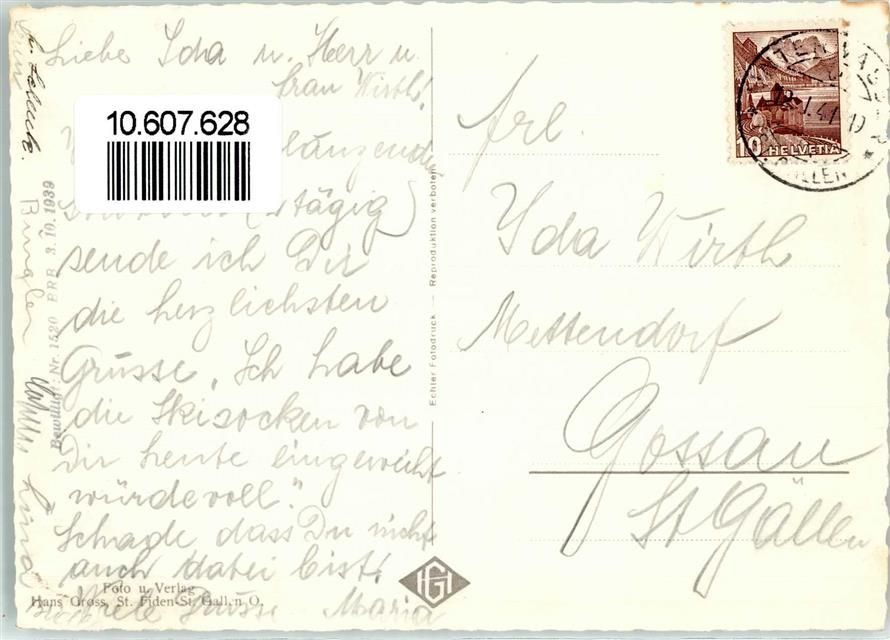 Liebe Ida u. Herr u.
Frau Wirth!
10.607.628
länzenden
tägig)
sende ich Dir
die herzlichsten
Grüsse. Ich habe
die Skisocken von
Dir heute eingeweiht
"würdevoll".
Schade dass Du nicht
auch dabei bist!
Viele Grüsse Maria
Foto u. Verlag
Hans Gross, St. Fiden-St. Gallen O.
Bewilligt: Nr. 1520 BRB 3.10.1939
Echter Fotodruck — Reproduktion verboten
HGI
10 HELVETIA
Frl.
Ida Wirth
Mettendorf
Gossau
St Gallen